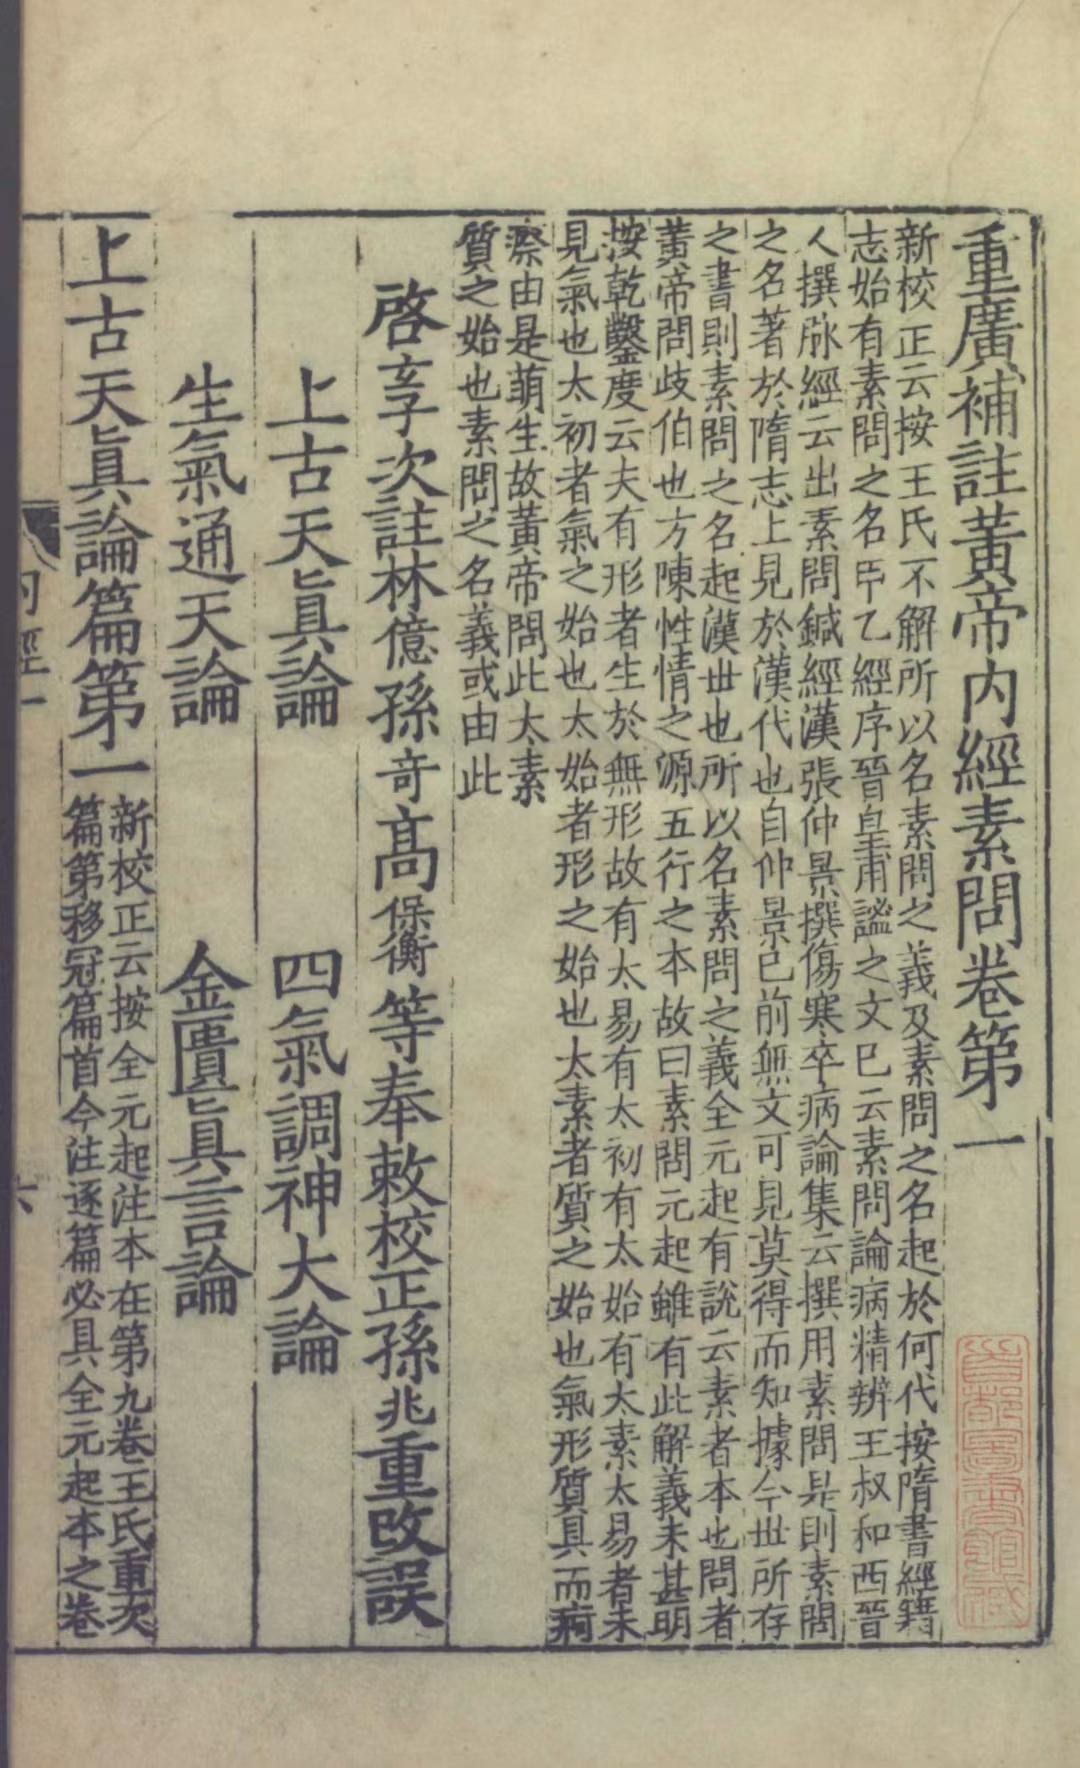 重廣補註黃帝内經素問卷第一
新校正云按王氏不解所以名素問之義及素問之名起於何代按隋書經籍
志始有素問之名甲乙經序晉皇甫謐之文已云素問論病精辨王叔和西晉
人撰脉經云出素問鍼經漢張仲景撰傷寒卒病論集云撰用素問是則素問
之名著於隋志上見於漢代也自仲景已前無文可見莫得而知據今世所存
之書則素問之名起漢世也所以名素問之義全元起有說云素者本也問者
黃帝問歧伯也方陳性情之源五行之本故曰素問元起雖有此解義未甚明
按乾鑿度云夫有形者生於無形故有太易有太初有太始有太素太易者未
見氣也太初者氣之始也太始者形之始也太素者質之始也氣形質具而痾
瘵由是萌生故黃帝問此太素
質之始也素問之名義或由此
啓玄子次註林億孫奇高保衡等奉敕校正孫兆重改誤
上古天眞論 四氣調神大論
生氣通天論 金匱眞言論
上古天眞論篇第一
新校正云按全元起注本在第九卷王氏重次
篇第移冠篇首今注逐篇必具全元起本之卷
内經一
六
首都圖書館藏